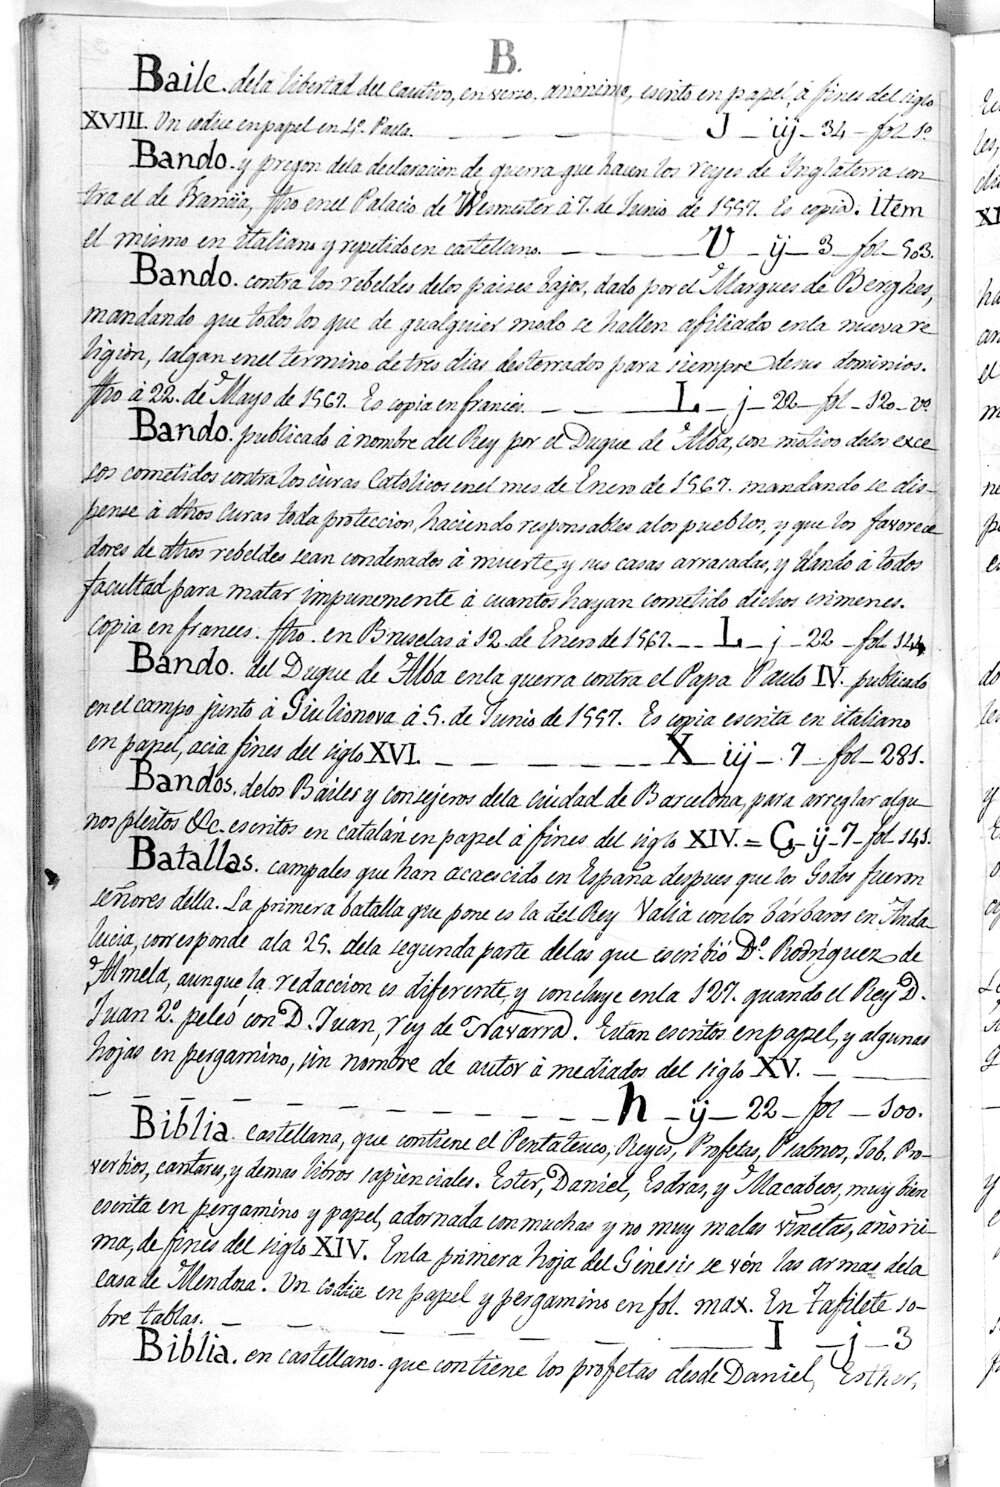 B.
Baile. dela libertad del Cautivo, en verso. anónimo, escrito en papel, á fines del siglo
XVIII. Un codice en papel en 4º. Pasta. — — — — J — iij — 34 — fol 1º
Bando. y pregon dela declaracion de guerra que hacen los reyes de Inglaterra con-
tra el de Francia, fho en el Palacio de Wesmester à 7. de Junio de 1557. Es copia. Item
el mismo en italiano y repetido en castellano. — — — V — ij — 3 — fol — 503.
Bando. contra los rebeldes delos paises bajos, dado por el Marques de Berghes,
mandando que todos los que de qualquier modo se hallen afiliados en la nueva re
ligion, salgan en el termino de tres dias desterrados para siempre de sus dominios.
fho à 22. de Mayo de 1567. Es copia en francés. — — — L — j — 22 — fol — 120 — vº.
Bando. publicado á nombre del Rey por el Duque de Alba, con motivo delos exce
sos cometidos contra los curas Católicos en el mes de Enero de 1567. mandando se dis-
pense à dhos Curas toda proteccion, haciendo responsables alos pueblos, y que los favorece
dores de dhos rebeldes sean condenados à muerte, y sus casas arrasadas, y dando à todos
facultad para matar impunemente à cuantos hayan cometido dichos crimenes.
Copia en frances. fho. en Bruselas à 12. de Enero de 1567. — — L — j — 22 — fol. 144
Bando. del Duque de Alba en la guerra contra el Papa Paulo IV. publicado
en el campo junto à Giulionova à 5. de Junio de 1557. Es copia escrita en italiano
en papel, acia fines del siglo XVI. — — — — — X — iij — 7 — fol — 281.
Bandos, delos Bailes y consejeros dela ciudad de Barcelona, para arreglar algu-
nos pleitos &c. escritos en catalán en papel à fines del siglo XIV. = G — ij — 7 — fol — 141.
Batallas. campales que han acaescido en España despues que los Godos fueron
señores della. La primera batalla que pone es la del Rey Valia con los bárbaros en Anda-
lucia, corresponde ala 25. dela segunda parte delas que escribió Dº. Rodriguez de
Almela, aunque la redaccion es diferente, y concluye en la 127. quando el Rey D.
Juan 2º. peleó con D. Juan, rey de Navarra. Estan escritos en papel, y algunas
hojas en pergamino, sin nombre de autor à mediados del siglo XV. — —
— — — — — — — — h — ij — 22 — fol — 100.
Biblia. Castellana, que contiene el Pentateuco, Reyes, Profetas, Psalmos, Job. Pro-
verbios, cantares, y demas libros sapienciales. Ester, Daniel, Esdras, y Macabeos, muy bien
escrita en pergamino y papel, adornada con muchas y no muy malas viñetas,
ma, de fines del siglo XIV. En la primera hoja del Génesis se vén las armas dela
casa de Mendoza. Un codice en papel y pergamino en fol. max. En Tafilete so-
bre tablas. — — — — — I — j — 3
Biblia. en castellano. que contiene los profetas desde Daniel, Esther,